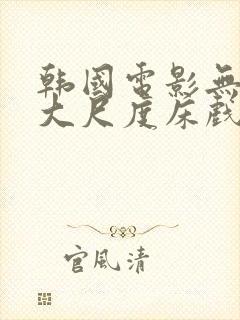 韩國電影無
大尺度床戲
官風清